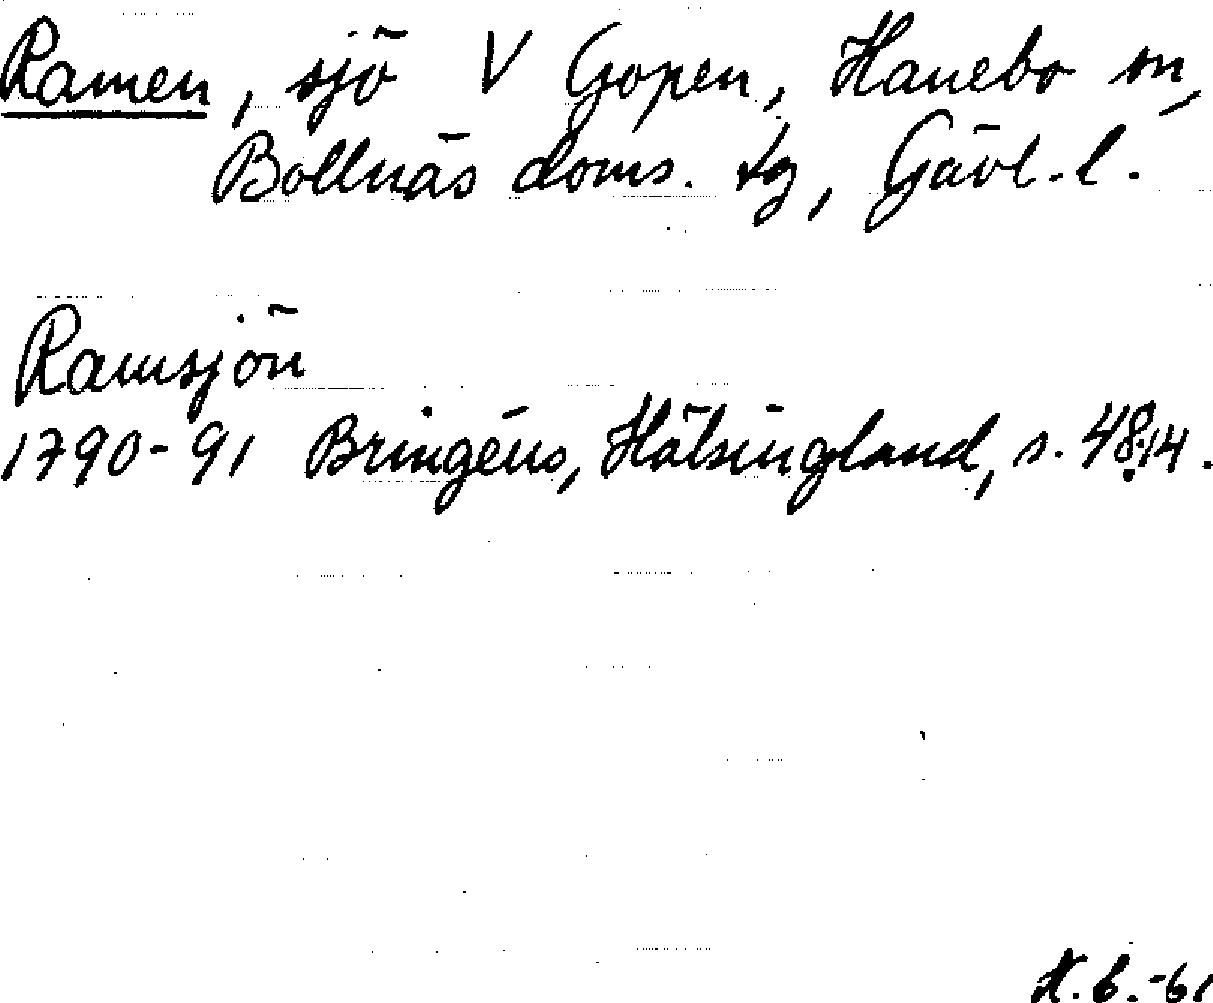 Ramen, sjö V Gopen, Hanebo sn,
Bollnäs doms. tg, Gävl. l.
Ramsjön
1790-91 Bringéus, Hälsingland, s. 48:14.
H.b.-61